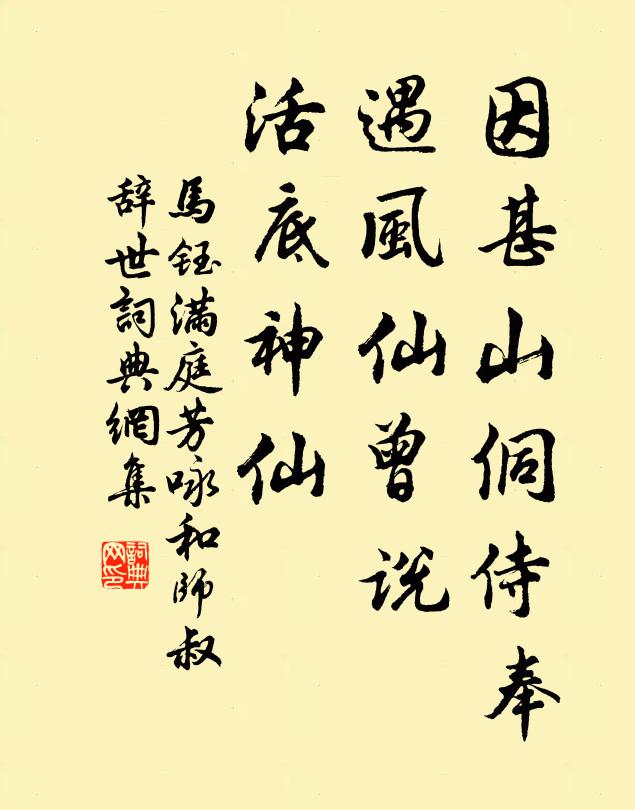 因甚山侗侍奉
遇風仙曾説
活底神仙
馬鈺滿庭芳咏和師叔
辞世詞典網集
詞典网印